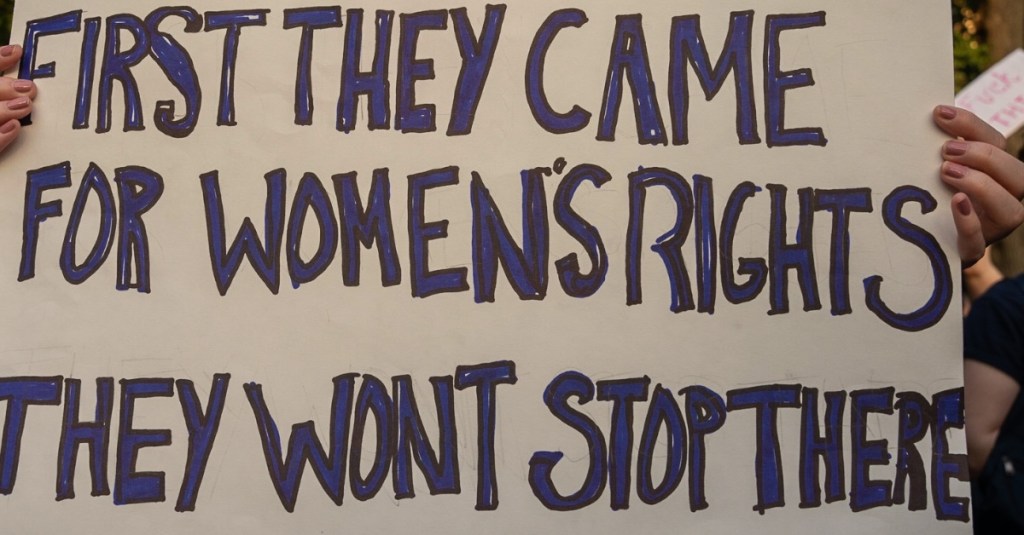 FIRST THEY CAME
FOR WOMEN'S RIGHTS
THEY WONT STOP THERE
FUCK
THE